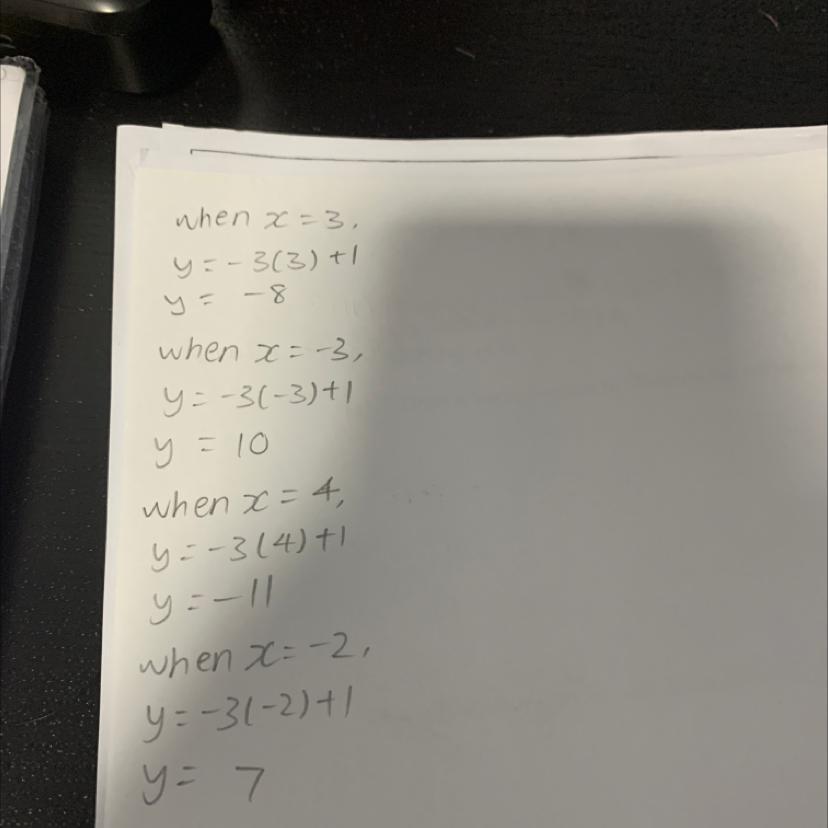 when x = 3,
y = -3(3)+1
y = -8
when x = -3,
y = -3(-3)+1
y = 10
when x = 4,
y = -3(4)+1
y = -11
when x = -2,
y = -3(-2)+1
y = 7